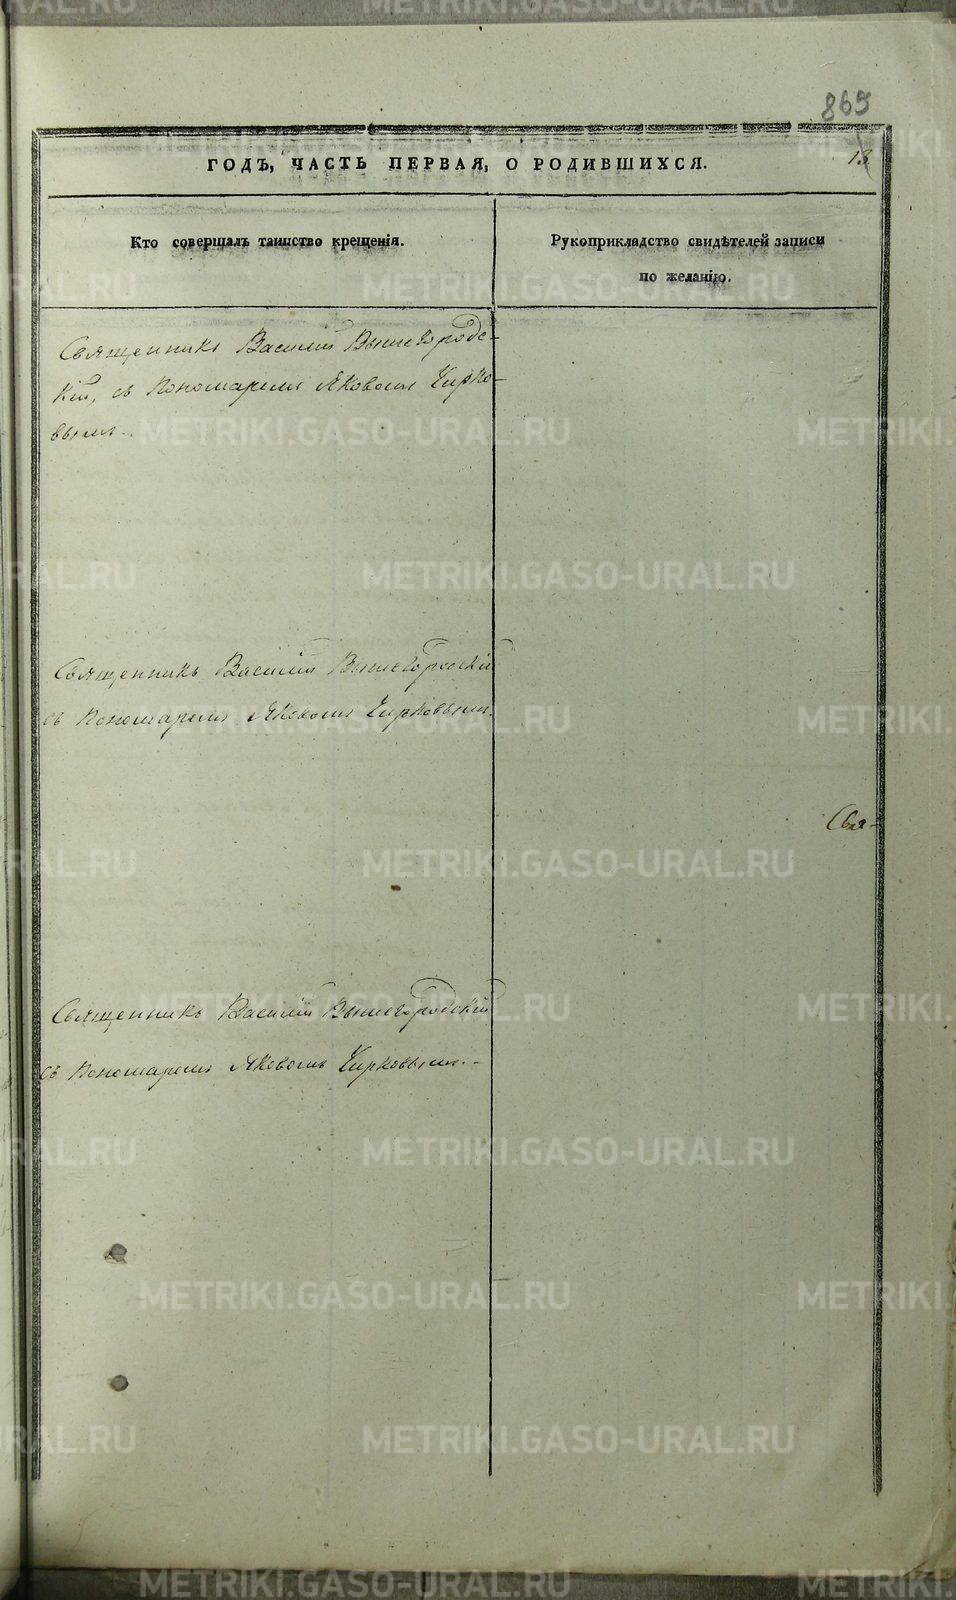 869
13
ГОДЪ, ЧАСТЬ ПЕРВАЯ, О РОДИВШИХСЯ.
Кто совершалъ таинство крещенія.
Рукоприкладство свидѣтелей записи
по желанію.
Священникъ Василій Вышегородс-
кій, съ Пономаремъ Яковомъ Чирко-
вымъ.
Священникъ Василій Вышегородскій
съ Пономаремъ Яковомъ Чирковымъ.
Свя-
Священникъ Василій Вышегородскій
съ Пономаремъ Яковомъ Чирковымъ.-
METRIKI.GASO-URAL.RU